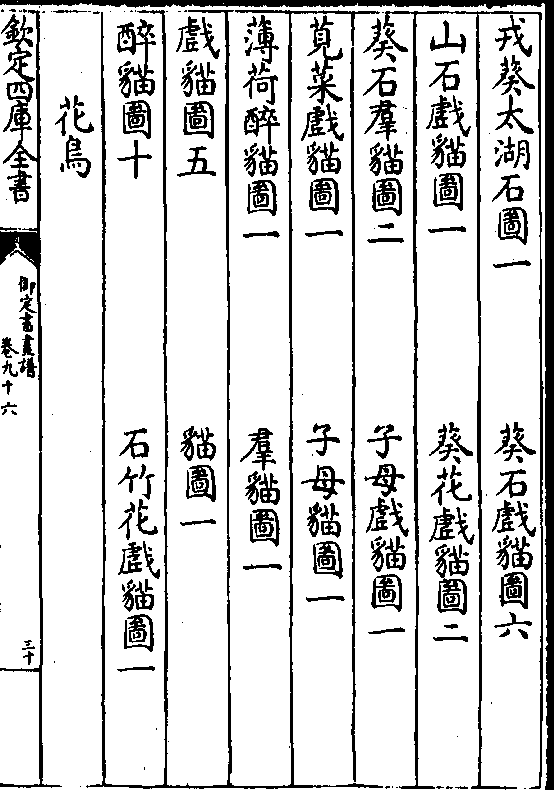 戎葵太湖石圖一　葵石戲貓圖六
山石戲貓圖一　葵花戲貓圖二
葵石羣貓圖二　子母戲貓圖一
莧菜戲貓圖一　子母貓圖一
薄荷醉貓圖一　羣貓圖一
戲貓圖五　貓圖一
醉貓圖十　石竹花戲貓圖一
花鳥
欽定四庫全書
御定書畫譜
卷九十六
三十